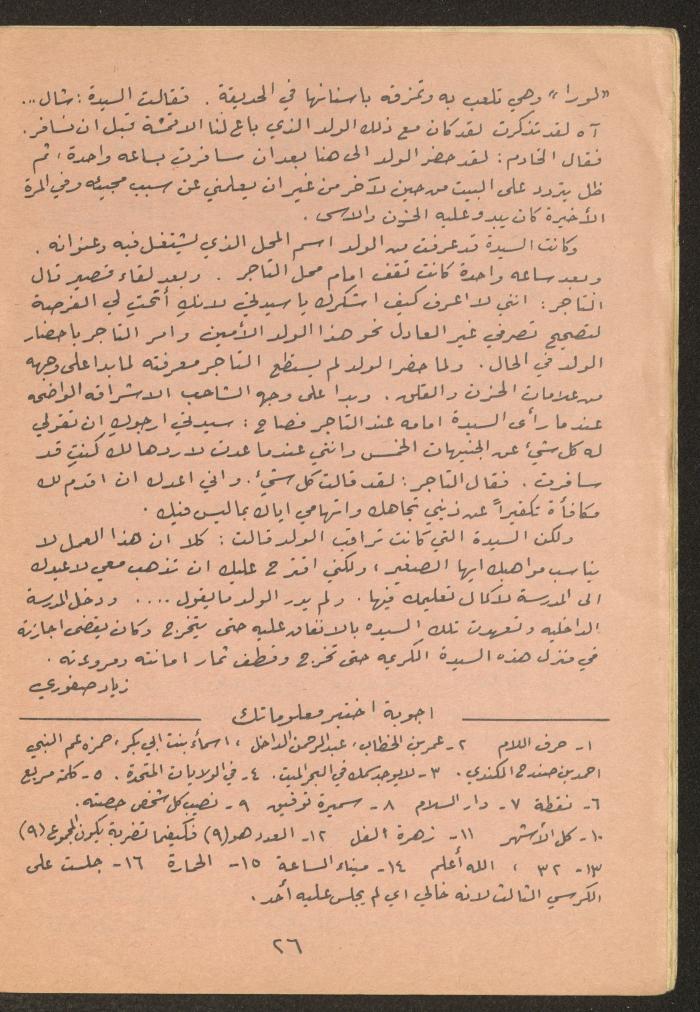 "لورا" وهي تلعب به وتمزقه باسنانها في الحديقة . فقالت السيدة : شال ...
آه لقد تذكرت لقد كان مع ذلك الولد الذي باع لنا الاقمشة قبل ان نسافر .
فقال الخادم : لقد حضر الولد الى هنا بعد ان سافرت بساعه واحدة ، ثم
ظل يتردد على البيت من حين لآخر من غير ان يعلمني عن سبب مجيئه وفي المرة
الأخيرة كان يبدو عليه الحزن والاسى .
وكانت السيدة قد عرفت من الولد اسم المحل الذي يشتغل فيه وعنوانه .
وبعد ساعه واحدة كانت تقف امام محل التاجر . وبعد لقاء قصير قال
التاجر : انني لا اعرف كيف اشكرك يا سيدتي لانك أتحت لي الفرصة
لتصحيح تصرفي غير العادل نحو هذا الولد الأمين وامر التاجر باحضار
الولد في الحال . ولما حضر الولد لم يستطع التاجر معرفته لما بدا على وجهه
من علامات الحزن والقلق . وبدا على وجهه الشاحب الاشراقه الواضحه
عندما رأى السيدة امامه عند التاجر فصاح : سيدتي ارجوك ان تقولي
له كل شيء عن الجنيهات الخمس وانني عندما عدت لاردها لك كنت قد
سافرت . فقال التاجر : لقد قالت كل شيء . واني اعدك ان اقدم لك
مكافأة تكفيراً عن ذنبي تجاهك واتهامي اياك بما ليس فيك .
ولكن السيدة التي كانت تراقب الولد قالت : كلا ان هذا العمل لا
يناسب مواهبك ايها الصغير ، ولكني اقترح عليك ان تذهب معي لاعيدك
الى المدرسة لاكمال تعليمك فيها . ولم يدر الولد ما يقول .... ودخل المدرسة
الداخليه وتعهدت تلك السيده بالانفاق عليه حتى يتخرج وكان يقضي اجازته
في منزل هذه السيدة الكريمه حتى تخرج وقطف ثمار امانته ومروءته .
زياد صفوري
اجوبة اختبر معلوماتك
١- حرف اللام ٢- عمر بن الخطاب ، عبد الرحمن الداخل ، اسماء بنت ابي بكر ، حمزه عم النبي
احمد بن الكندي . ٣- لا يوجد سمك في البحر الميت . ٤- في الولايات المتحدة . ٥- كلمة مربع
٦- نقطة ٧- دار السلام ٨- سميرة توفيق ٩- نصيب كل شخص حصته .
١٠- كل الأشهر ١١- زهرة الفل ١٢- العدد هو (٩) فكيفما تضربه يكون المجموع (٩)
١٣- ٣٢ ، الله أعلم ١٤- ميناء الساعة ١٥- الحمارة ١٦- جلست على
الكرسي الثالث لانه خالي اي لم يجلس عليه أحد .
٢٦